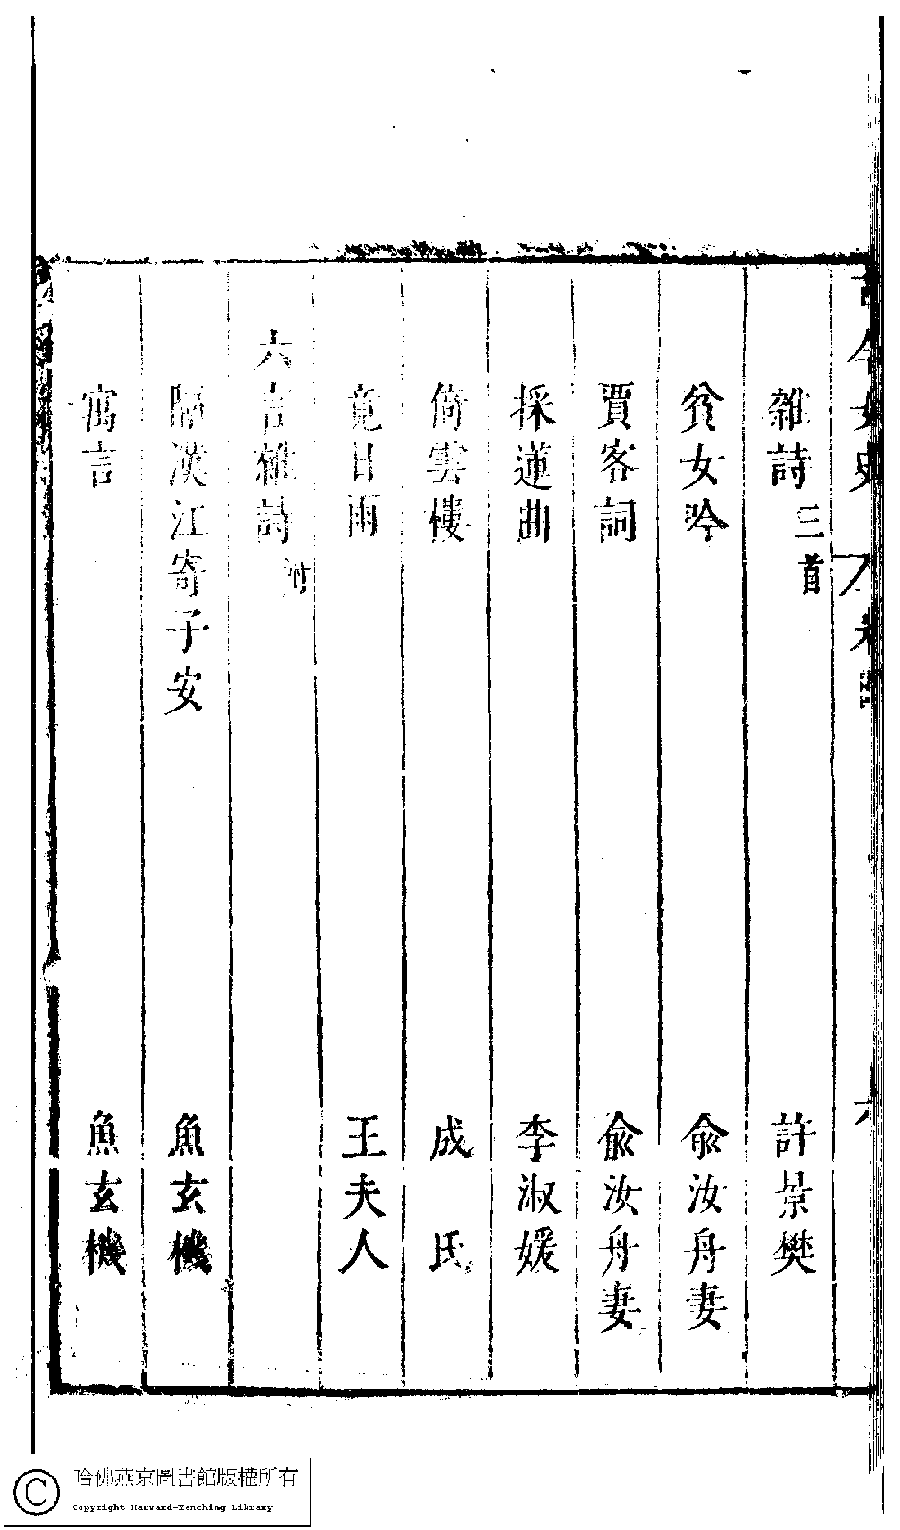 雜詩三首 許景樊
貧女吟 俞汝舟妻
賈客詞 俞汝舟妻
採蓮曲 李淑媛
倚雲樓 成氏
竟日雨 王夫人
六言雜詩附
隔漢江寄子安 魚玄機
寓言 魚玄機
哈佛燕京圖書館版權所有
Copyright Harvard-Yenching Library